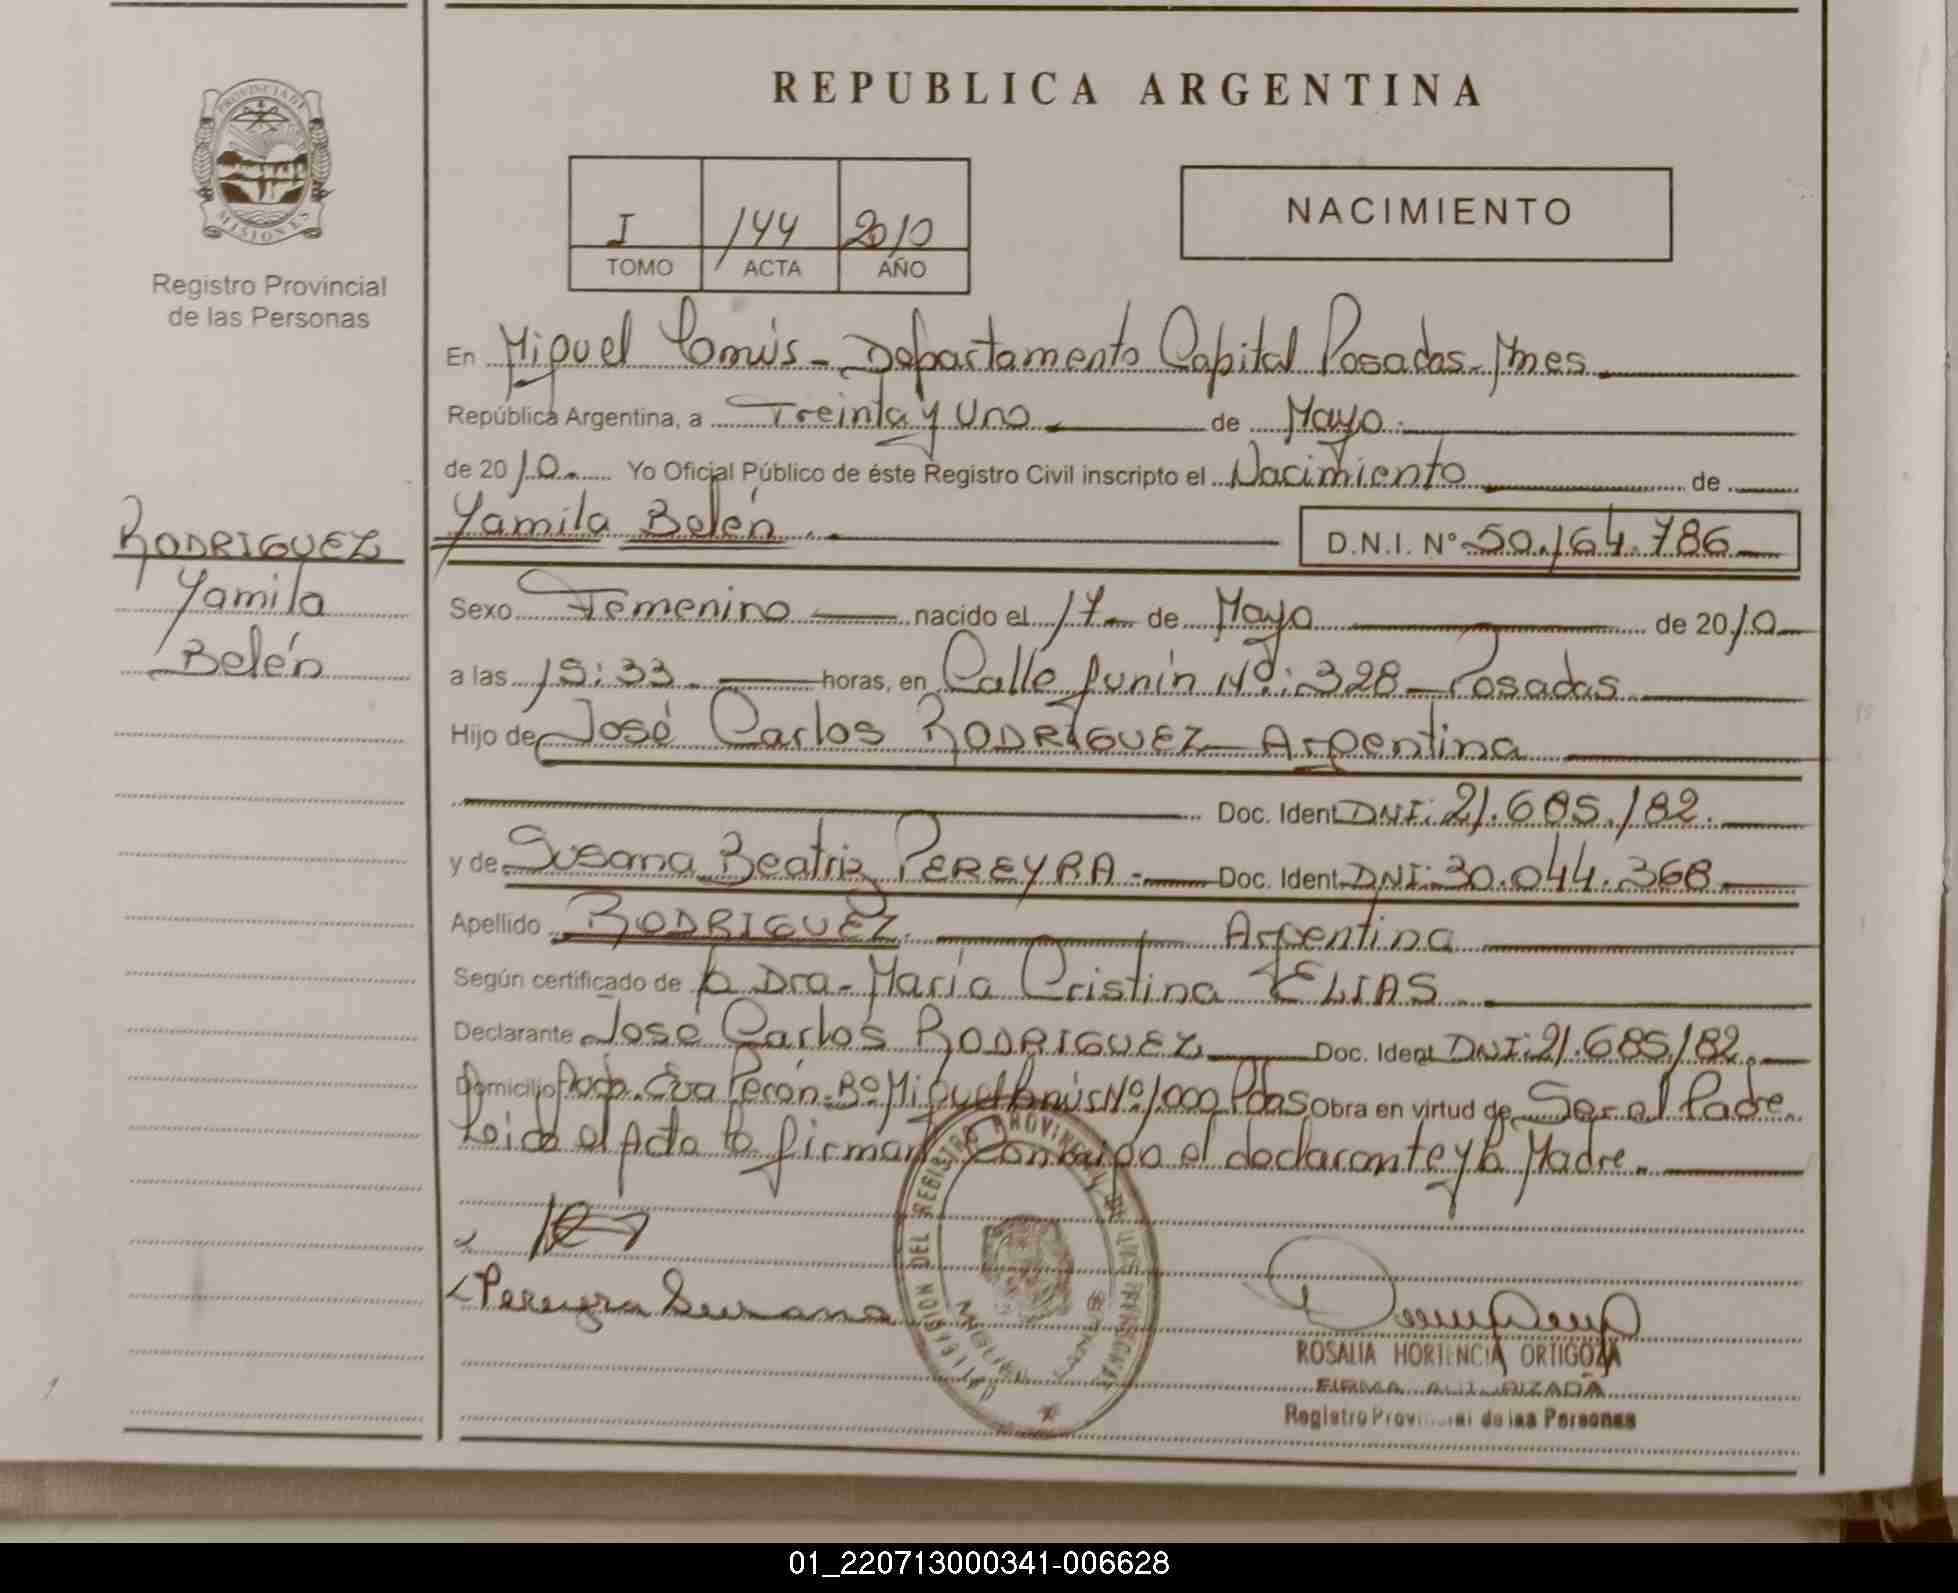 REPUBLICA ARGENTINA
PROVINCIA DE
MISIONES
Registro Provincial
de las Personas
I 144 2010
TOMO ACTA AÑO
NACIMIENTO
En Miguel Lanús - Departamento Capital Posadas - Mnes
República Argentina, a Treinta y Uno de Mayo
de 2010 Yo Oficial Público de éste Registro Civil inscripto el Nacimiento de
Yamila Belén D.N.I. Nº 50.164.786
RODRIGUEZ
Yamila
Belén
Sexo Femenino nacido el 17 de Mayo de 2010
a las 19:33 horas, en Calle Junín Nº: 328 - Posadas
Hijo de José Carlos RODRIGUEZ - Argentina
Doc. Ident. DNI: 21.685.182.
y de Susana Beatriz PEREYRA - Doc. Ident. DNI: 30.044.368
Apellido RODRIGUEZ. Argentina
Según certificado de la Dra. María Cristina ELIAS
Declarante José Carlos RODRIGUEZ Doc. Ident. DNI: 21.685.182.
Domicilio Eva Perón - Bº Miguel Lanús Nº 1.000 Pdas Obra en virtud de Ser el Padre
Leída el Acta la firman Conmigo el declarante y la Madre.
Pereyra Susana
DELEGACION DEL REGISTRO PROVINCIAL DE LAS PERSONAS
MIGUEL LANUS
ROSALIA HORTENCIA ORTIGOZA
FIRMA AUTORIZADA
Registro Provincial de las Personas
01_220713000341-006628